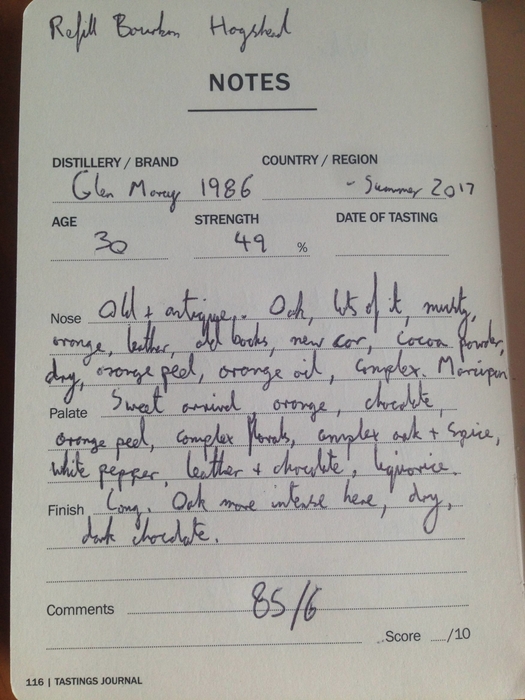 Refill Bourbon Hogshead
NOTES
DISTILLERY / BRAND COUNTRY / REGION
Glen Moray 1986 - Summer 2017
AGE STRENGTH DATE OF TASTING
30 49 %
Nose Old + antique. Oak, lots of it, musty,
orange, leather, old books, new car, cocoa powder,
dry, orange peel, orange oil, complex. Marzipan
Palate Sweet arrival, orange, chocolate,
orange peel, complex florals, complex oak + spice,
white pepper, leather + chocolate, liquorice.
Finish Long. Oak more intense here, dry,
dark chocolate.
Comments 85/6
Score /10
116 | TASTINGS JOURNAL